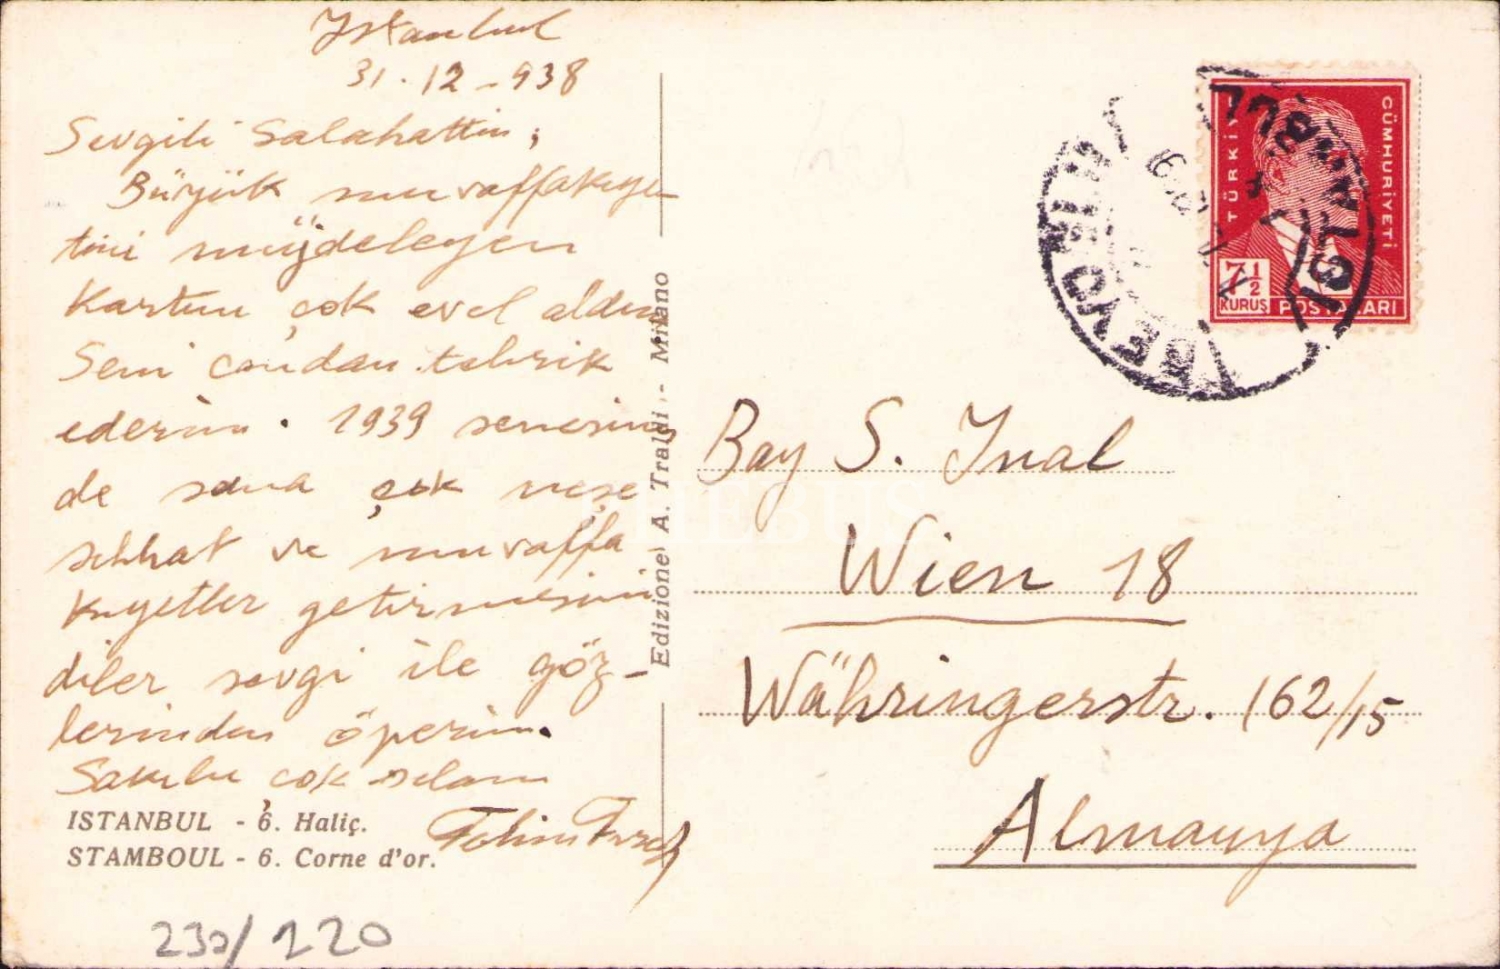 Istanbul
31.12-938
Sevgili Salahattin,
Büyük muvaffakıye
tini müjdeleyen
Kartını çok evel aldım
Seni candan tebrik
ederim. 1939 senesinin
de sana çok neşe
sıhhat ve muvaffa
kıyetler getirmesini
diler sevgi ile göz-
lerinden öperim.
çok selam
ISTANBUL - 6. Haliç.
STAMBOUL - 6. Corne d'or.
230/220
Edizione A. Traldi - Milano
TÜRKİYE CÜMHURİYETİ
7 1/2
KURUŞ POSTALARI
BEYOĞLU
İSTANBUL
Bay S. Inal
Wien 18
Währingerstr. 162/15
Almanya
PHEBUS